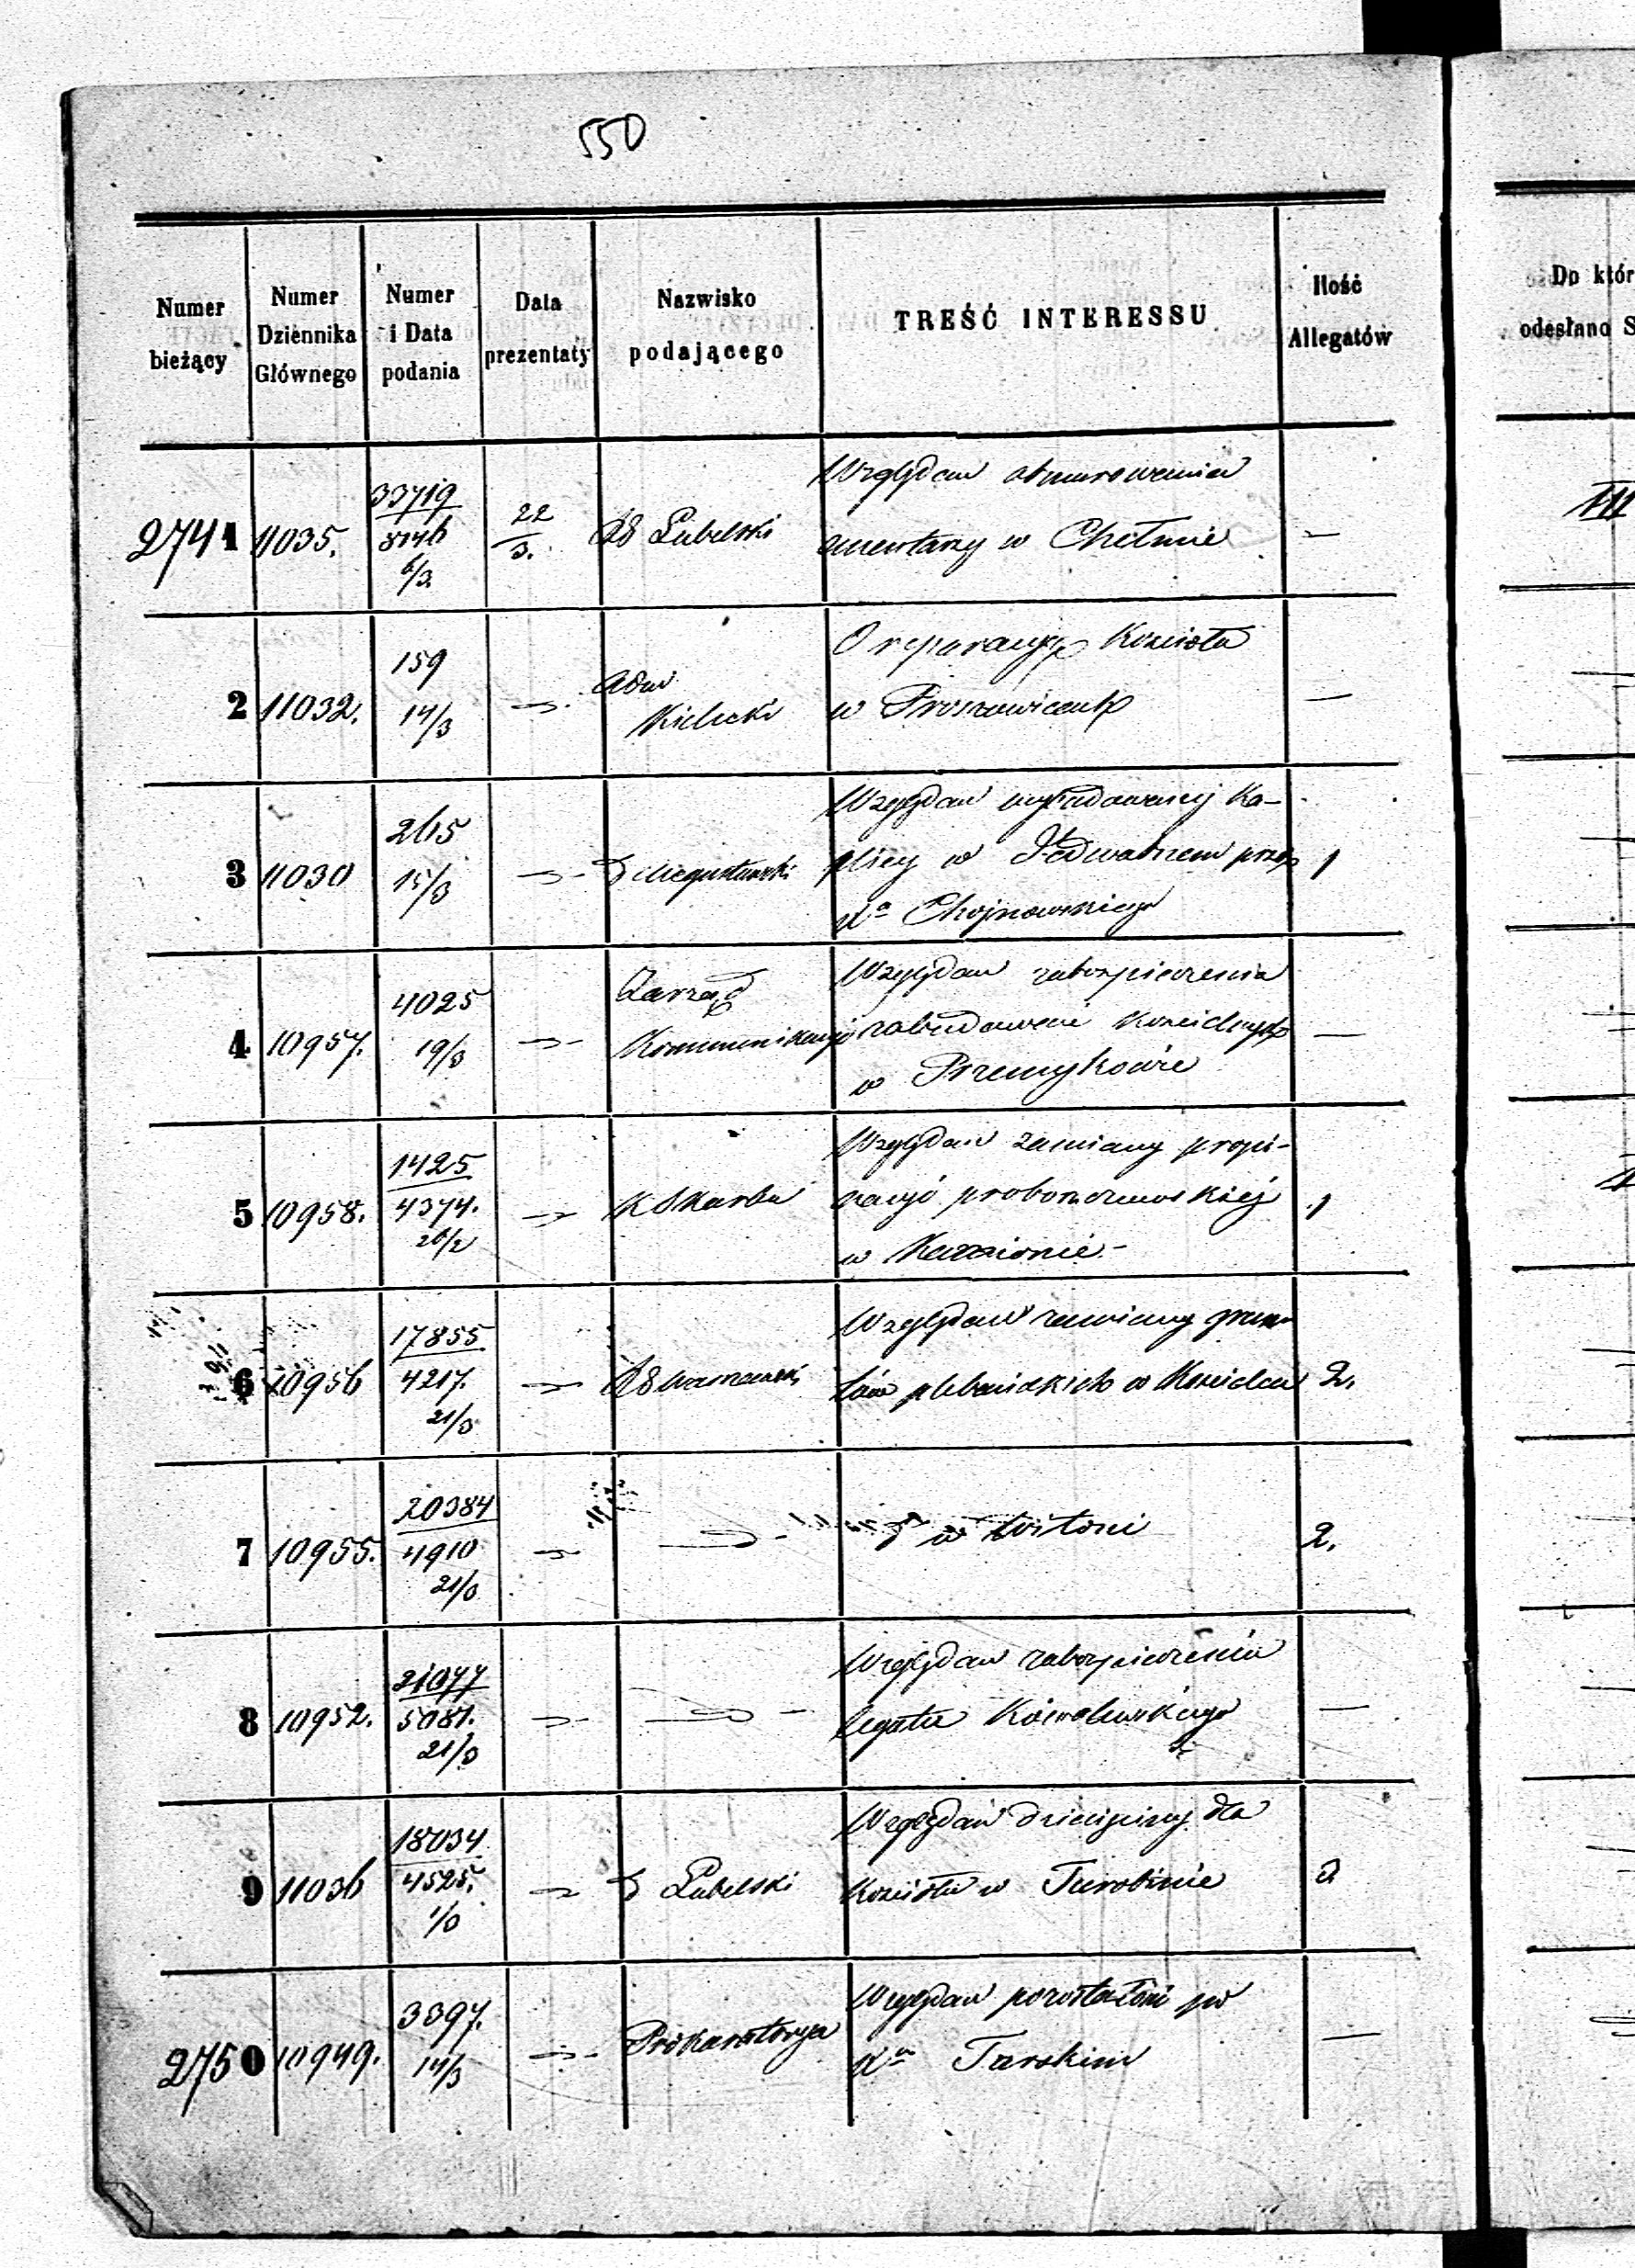 550
Numer bieżący
Numer Dziennika Głównego
Numer i Data podania
Data prezentaty
Nazwisko podającego
TREŚĆ INTERESSU
Ilość Allegatów
Do któr
odesłano S
2741 11035. 33719 8146 6/3 22/3. RG Lubelski
Względem obmurowania
cmentarzy w Chełmie —
III
2 11032. 159 14/3 Adm Kielecki
O reparacyę Kościoła
w Proszowicach —
3 11030 265 15/3
Względem wybudowanej Ka-
plicy w Jedwabnem przez 1
Xa Chojnowskiego
4 10957. 4025 19/3 Zarząd Kommunikacyi
Względem zabezpieczenia
zabudowań Kościelnych —
w Przemykowie
5 10958. 1425 4374. 26/2 K Skarbu
Względem zamiany propi-
nacyi proboszczowskiéj 1
w
6 10956 17855 4217. 21/3 RG Warszawski
Względem zamiany grun
tów plebańskich w Kościelcu 2.
7 10955. 20384 4910 21/3
w Witoni 2.
8 10952. 21077 5081. 21/3
Względem zabezpieczenia
legatu —
9 11036 18034 4525. 1/3 Lubelski
Względem dziesięciny dla
Kościoła w Turobinie 2
2750 10949. 3397. 14/3 Prokuratorya
Względem pozostałości po
Xu Turskim —